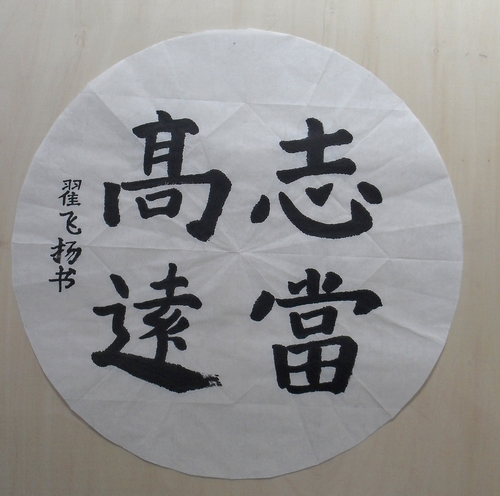 志當
高遠
翟飞扬书